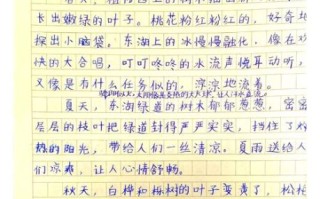 长出嫩绿的叶子。桃花粉红粉红的，好奇地
探出小脑袋。东湖上的冰慢慢融化，像在欢
快的大合唱，叮叮咚咚的水流声悦耳动听，
又像是有什么任务似的，淙淙地流着。
夏天，东湖绿道的树木郁郁葱葱，密密
层层的枝叶把绿道封得严严实实，挡住了炎
热的阳光，带给人们一丝清凉。夏雨送给人
们凉爽，让人心情舒畅。
秋天，白桦和栎树的叶子变黄了，松柏